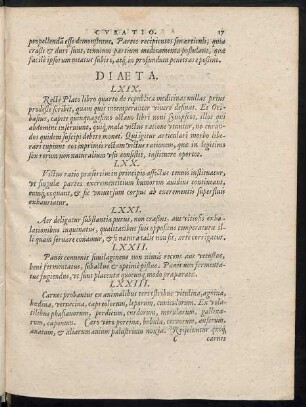 CVRATIO. 17
pro pellentia esse demonstrent. Partes recipientes semoretinti; quia
crasse & dura sunt, tenuium partium medicamenta postulant, quæ
facile ipsorum natura subire, atq; in profundum penetrare possint.
DIAETA.
LXIX.
Recte Plato libro quarto de republica medicinas nullas prius
prodesse scribit, quam quis intemperanter vivere desinat. Et Ori-
basius, capite quinquagesimo octavo libri noni Synopseos, illos qui
abdomini inserviunt, quiq; mala victus ratione utuntur, ne curan-
dos quidem suscipi debere monet. Qui igitur articulari morbo libe-
rari cupiunt eos inprimis rectam victus rationem, quæ in legitimo
sex rerum non naturalium usu consistit, instituere oportet.
LXX.
Victus ratio præsertim in principio affectus tenuis instituatur,
ut singulæ partes excrementitium humorem avidius contineant,
eumq; exhauriant, & sic universum corpus ab excrementis superfluis
exhauriatur,
LXXI.
Aer deligatur substantia purus, non crassus, aut vitiosis exha-
lationibus inquinatus, qualitatibus suis oppositus temperaturæ il-
li quam servare conamur, & si naturalis non sit, arte corrigatur.
LXXII.
Panis conveniet similagineus non nimis recens aut vetustus,
bene fermentatus, subactus & optime pistus. Panis non fermenta-
tus fugiendus, ut sunt placentæ quocunq; modo præparatæ.
LXXIII.
Carnes probantur ex animalibus terrestribus vitulina, agnina,
hædina, vervecina, capreolorum, leporum, cuniculorum. Ex vola-
tilibus phasianorum, perdicum, turdorum, merularum, gallina-
rum, caponum. Caro vero porcina, bubula, cervorum, anserum,
anatum, & aliarum avium palustrium noxia. Reijciuntur quoq;
C carnes